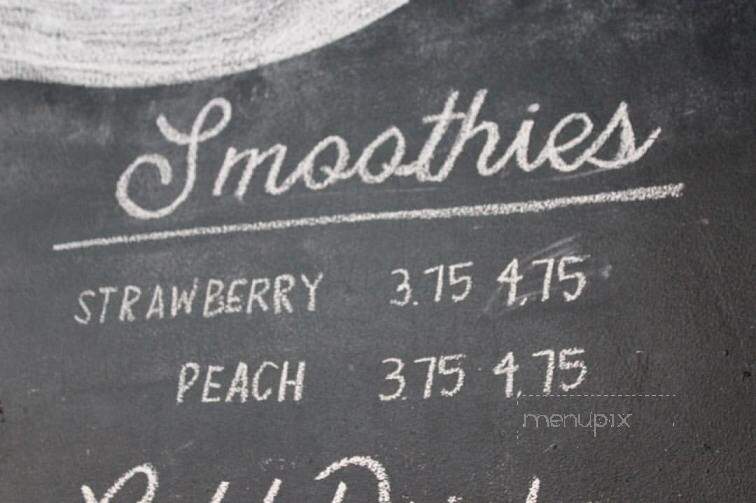 Smoothies
STRAWBERRY 3.75 4.75
PEACH 3.75 4.75
menupix